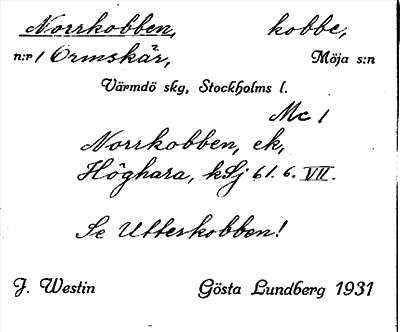 Norrkobben, kobbe,
n:r 1 Ormskär, Möja s:n
Värmdö skg, Stockholms l.
Mc 1
Norrkobben, ek,
Höghara, kSj 61.6. VII.
Se Utterkobben!
J. Westin Gösta Lundberg 1931